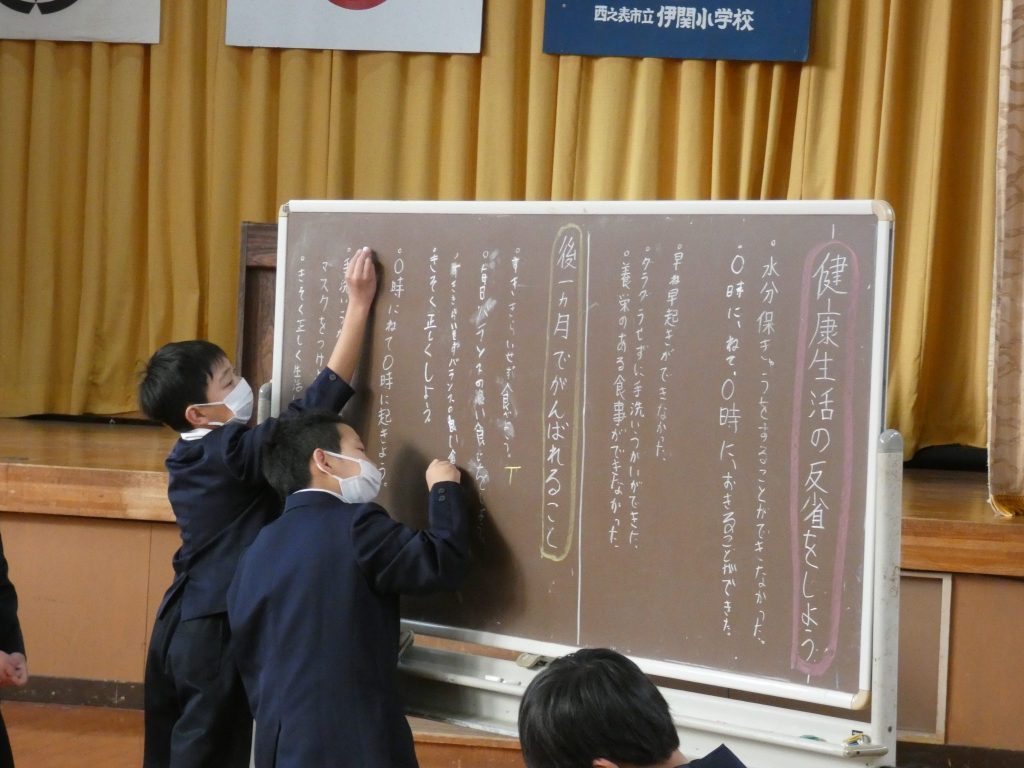 西之表市立 伊関小学校
健康生活の反省をしよう
・水分保きゅうをすることができなかった。
・〇時に、ねて、〇時に、おきることができた。
・早ね早起きができなかった。
・ダラダラせずに手洗いうがいができた。
・養栄のある食事ができなかった。
後一ヵ月でがんばれること
・すききらいせず食べよう。
きそく正しくしよう
・〇時にねて〇時に起きよう。
マスクをつけ
・きそく正しく生活